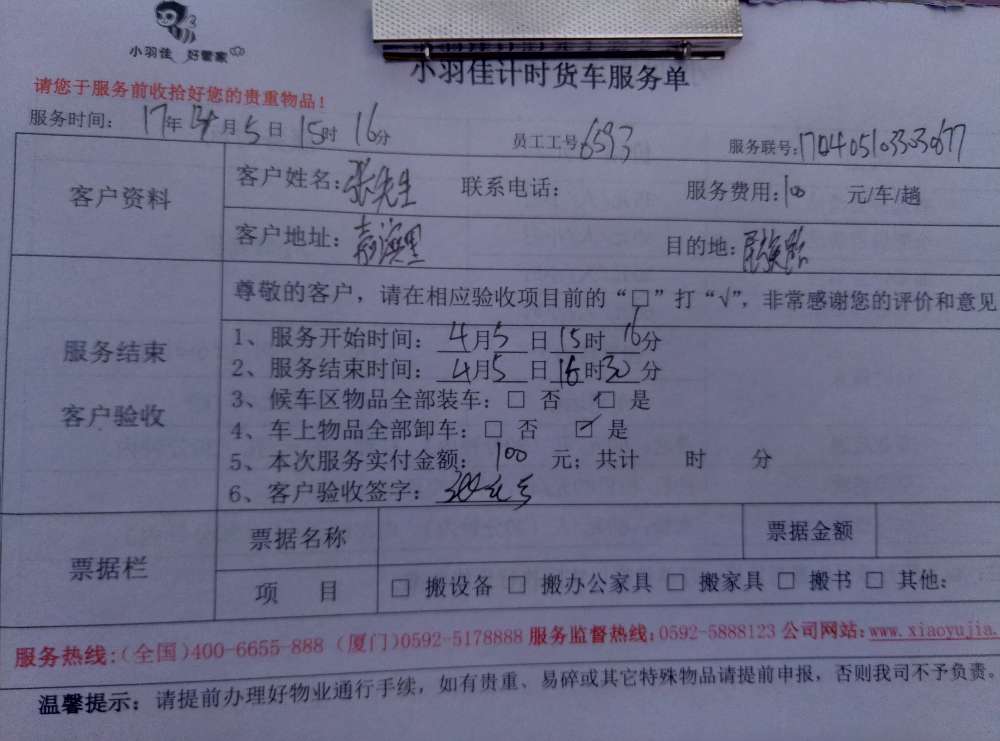 小羽佳 好管家
小羽佳计时货车服务单
请您于服务前收拾好您的贵重物品！
服务时间： 17年 4月5日 15时 16分 员工工号6593 服务联号:17040510333077
客户资料
客户姓名:张先生 联系电话: 服务费用:100 元/车/趟
客户地址: 目的地:
尊敬的客户，请在相应验收项目前的“□”打“√”，非常感谢您的评价和意见
服务结束
客户验收
1、服务开始时间： 4月5日15时16分
2、服务结束时间： 4月5日16时30分
3、候车区物品全部装车：□ 否 ☑ 是
4、车上物品全部卸车：□ 否 ☑ 是
5、本次服务实付金额： 100 元；共计 时 分
6、客户验收签字：
票据栏
票据名称 票据金额
项 目 □ 搬设备 □ 搬办公家具 □ 搬家具 □ 搬书 □ 其他:
服务热线:(全国)400-6655-888 (厦门)0592-5178888 服务监督热线:0592-5888123 公司网站:www.xiaoyujia.
温馨提示：请提前办理好物业通行手续，如有贵重、易碎或其它特殊物品请提前申报，否则我司不予负责。